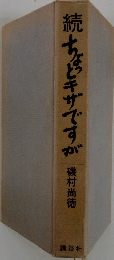 続ちょっとキザですが
磯村尚徳
講談社